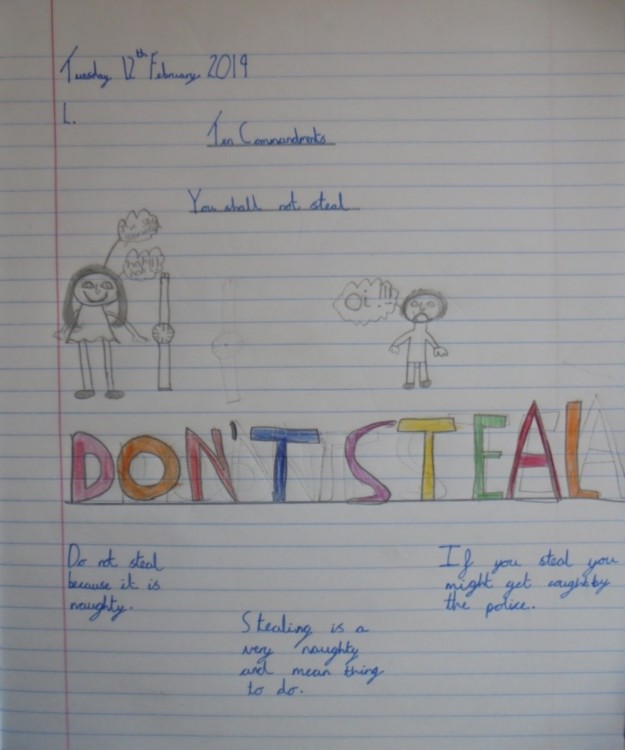 Tuesday 12th February 2019
L.
Ten Commandments
You shall not steal
Oi!!!
DON'T STEAL
Do not steal
because it is
naughty.
If you steal you
might get caught by
the police.
Stealing is a
very naughty
and mean thing
to do.